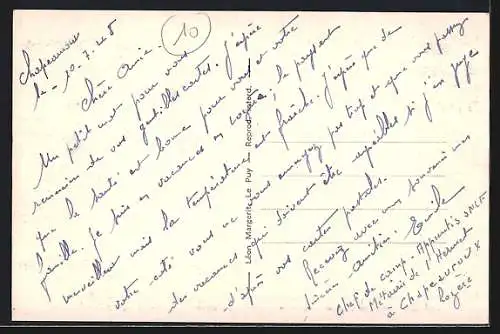 10
Chapeauroux
le 20.7.48
Chère Amie.
Un petit mot pour vous
remercier de vos gentilles cartes. J'espère
que la santé est bonne pour vous et votre
famille. Je suis en vacances en Lozère, le pays est
merveilleux mais la température est fraîche. J'espère que de
votre côté vous ne vous ennuyez pas trop et que vous passez
des vacances qui doivent être agréables si j'en juge
d'après vos cartes postales.
Recevez avec mon souvenir mes
Emile
Chef de Camp. Apprentis SNCF
Métairie de l'Hermet
à Chapeauroux
Lozère
Léon Margerit, Le Puy Reprod. interd.